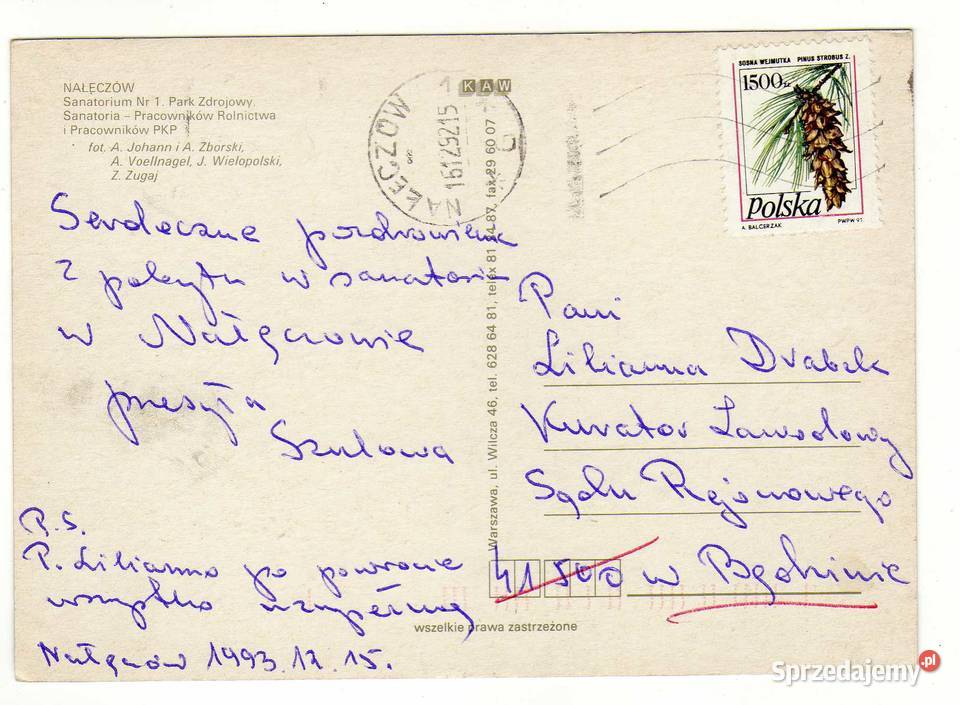 NAŁĘCZÓW
Sanatorium Nr 1. Park Zdrojowy.
Sanatoria – Pracowników Rolnictwa
i Pracowników PKP
fot. A. Johann i A. Zborski,
A. Voellnagel, J. Wielopolski,
Z. Zugaj
KAW
NAŁĘCZÓW
1
SOSNA WEJMUTKA PINUS STROBUS Z.
1500zł
Polska
A. BALCERZAK PWPW 91
Serdeczne pozdrowienia
z pobytu w sanatorium
w Nałęczowie
przesyła
Szulowa
P.S.
P. Lilianno po powrocie
wszystko uzupełnię
Nałęczów 1993.12.15.
Warszawa, ul. Wilcza 46, tel. 628 64 81, telex 81 34 87, fax 29 60 07
Pani
Lilianna Drabek
Kurator Zawodowy
Sądu Rejonowego
41 500 w Będzinie
wszelkie prawa zastrzeżone
Sprzedajemy.pl